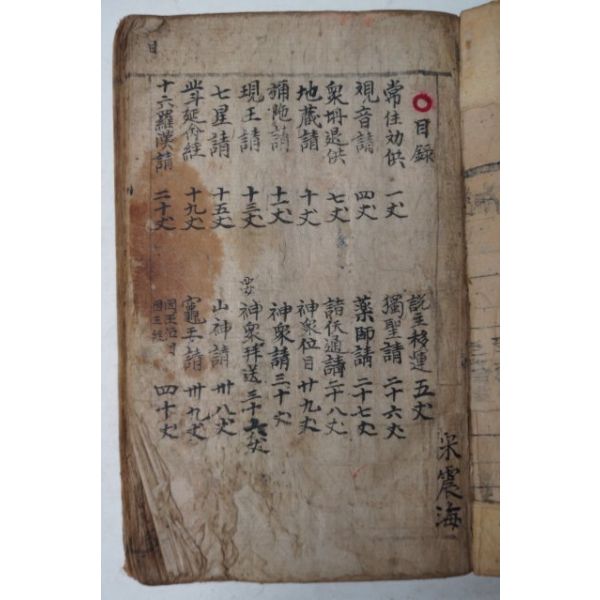 目錄
常住劝供 一丈
觀音請 四丈
衆壇退供 七丈
地藏請 十丈
彌陀請 十一丈
現王請 十三丈
七星請 十五丈
北斗延命經 十九丈
十六羅漢請 二十丈
說主移運 五丈
獨聖請 二十六丈
藥師請 二十七丈
諸佛通請 二十八丈
神衆位目 廿九丈
神衆請 三十丈
神衆拜送 三十六丈
山神請 卅八丈
竈王請 卅九丈
四十丈
宋震海
目